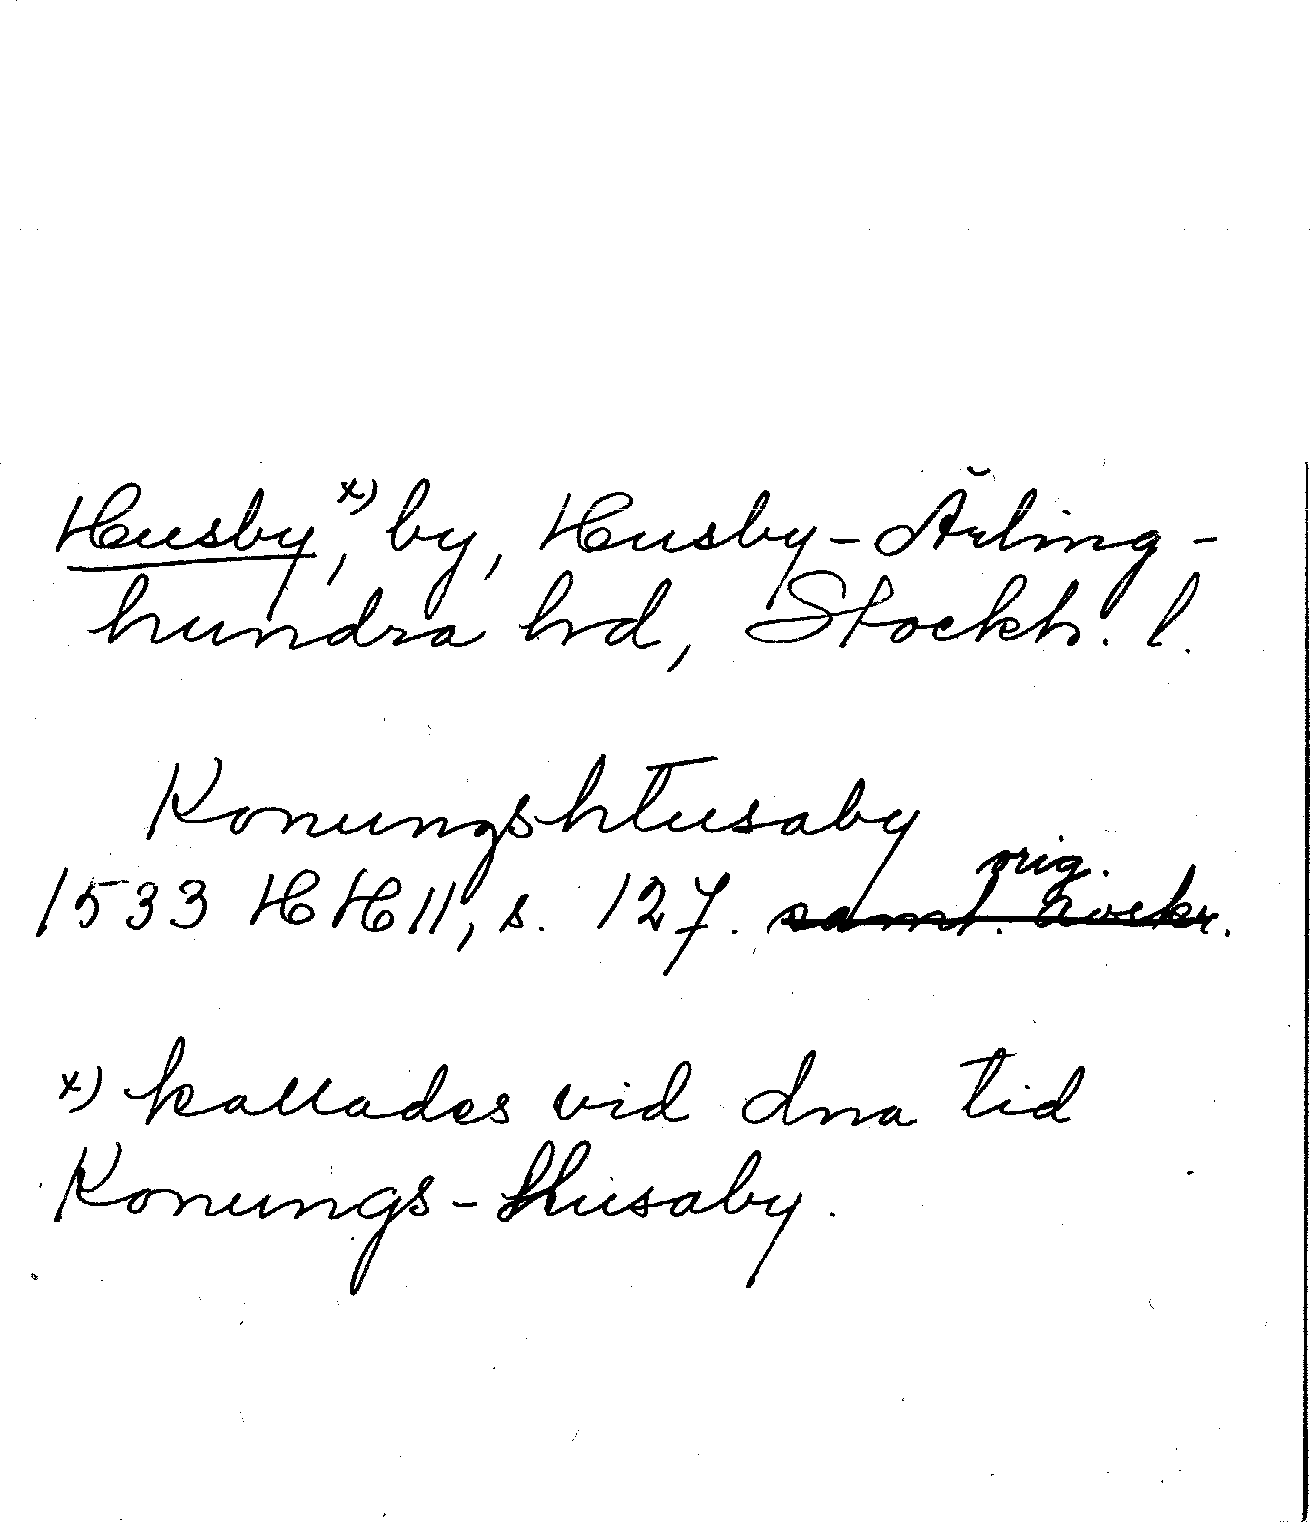 Husby x), by, Husby-Ärling-
hundra hd, Stockh. l.
Konungshtusaby
orig.
1533 HH 11, s. 127.
x) kallades vid dna tid
Konungs-Husaby.